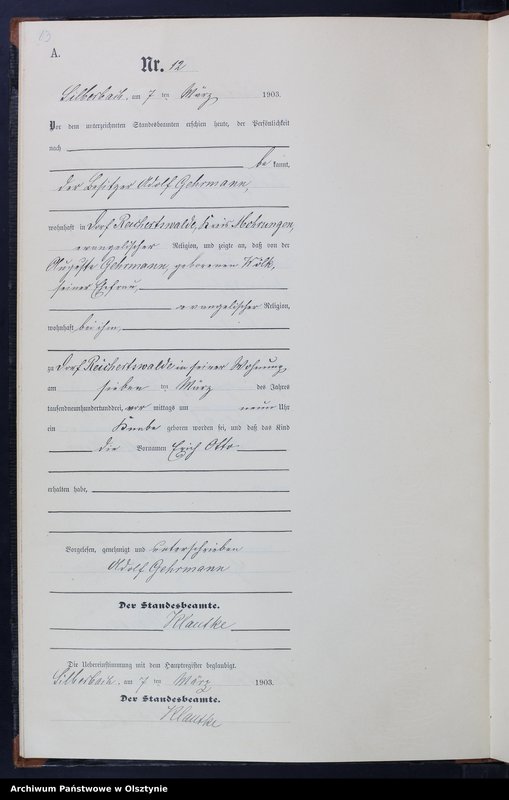 13
A.
Nr. 12
Silberbach am 7 ten März 1903.
Vor dem unterzeichneten Standesbeamten erschien heute, der Persönlichkeit
nach
be kannt,
der Besitzer Adolf Gehrmann,
wohnhaft in Dorf Reichertswalde, Kreis Mohrungen,
evangelischer Religion, und zeigte an, daß von der
Auguste Gehrmann, geborenen Wölk,
seiner Ehefrau,
evangelischer Religion,
wohnhaft bei ihm,
zu Dorf Reichertswalde in seiner Wohnung
am sieben ten März des Jahres
tausendneunhundertunddrei, vor mittags um neun Uhr
ein Knabe geboren worden sei, und daß das Kind
die Vornamen Erich Otto
erhalten habe,
Vorgelesen, genehmigt und unterschrieben
Adolf Gehrmann
Der Standesbeamte.
Klautke
Die Uebereinstimmung mit dem Hauptregister beglaubigt.
Silberbach am 7 ten März 1903.
Der Standesbeamte.
Klautke
Archiwum Państwowe w Olsztynie